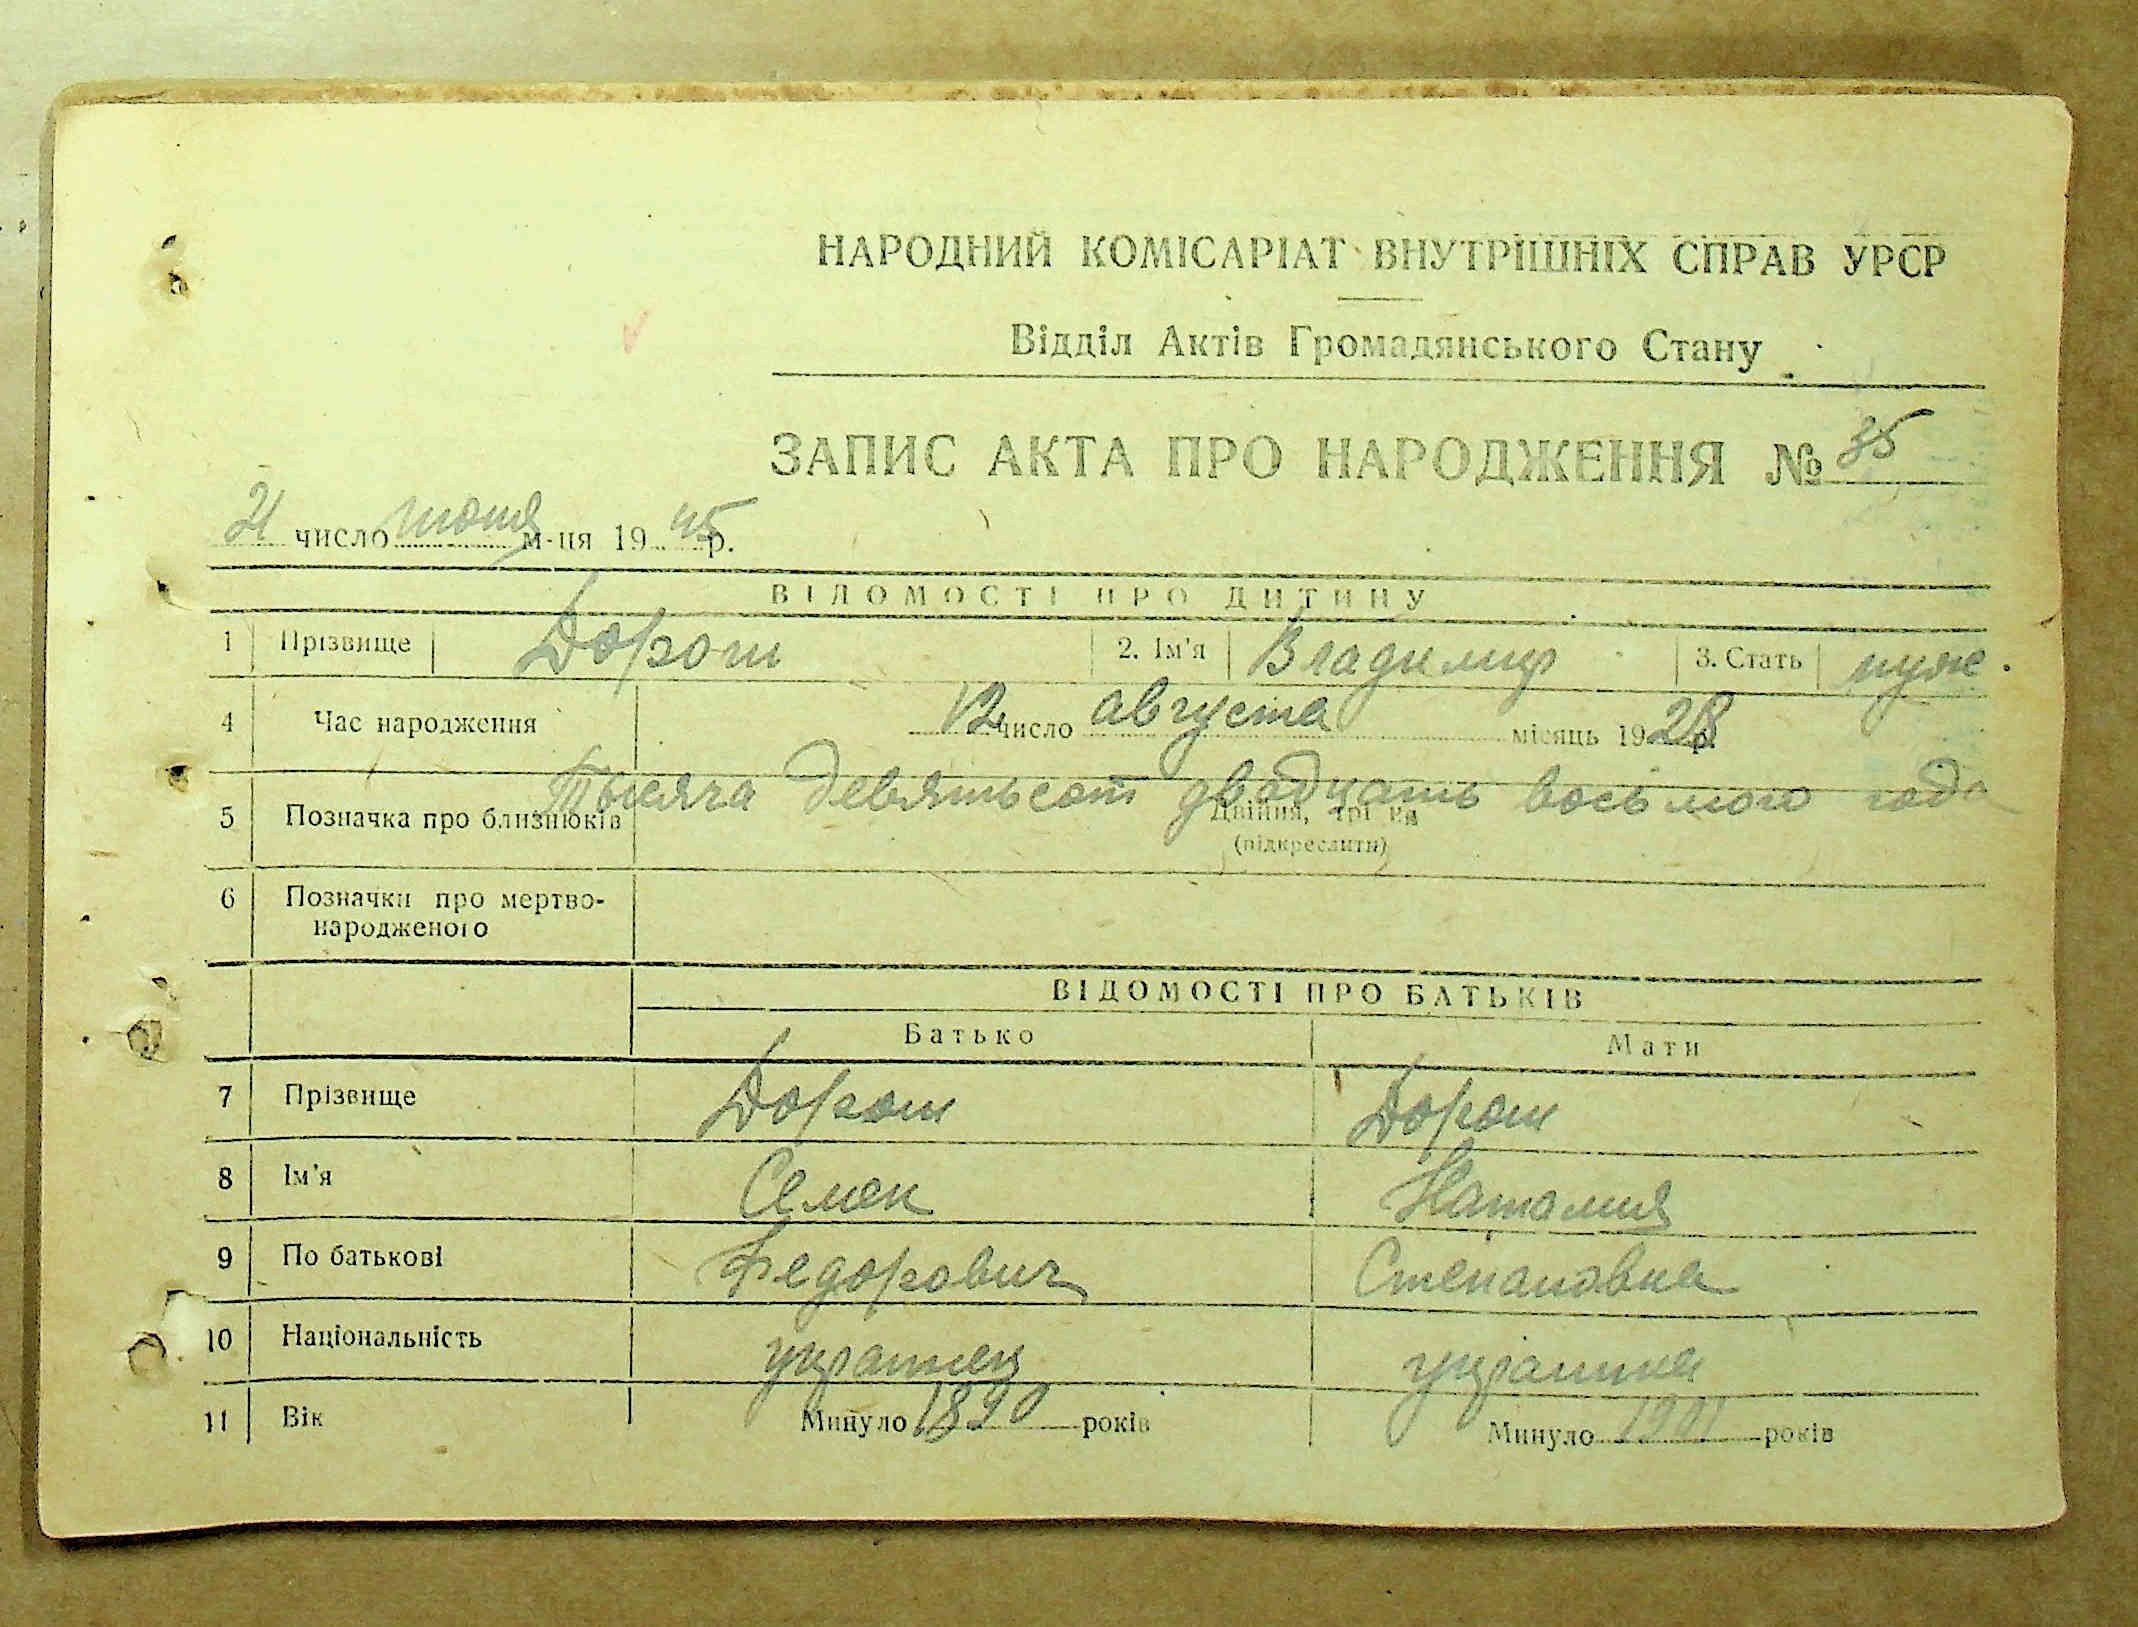 НАРОДНИЙ КОМІСАРІАТ ВНУТРІШНІХ СПРАВ УРСР
Відділ Актів Громадянського Стану
ЗАПИС АКТА ПРО НАРОДЖЕННЯ № 35
21 число июня м-ця 1945 р.
ВІДОМОСТІ ПРО ДИТИНУ
1 Прізвище Дорош 2. Ім'я Владимир 3. Стать муж.
4 Час народження 12 число августа місяць 1928 р.
Тысяча девятьсот двадцать восьмого года
5 Позначка про близнюків Двійня, трійня
(підкреслити)
6 Позначки про мертво-
народженого
ВІДОМОСТІ ПРО БАТЬКІВ
Батько Мати
7 Прізвище Дорош Дорош
8 Ім'я Семен Наталия
9 По батькові Федорович Степановна
10 Національність украинец украинка
11 Вік Минуло 1890 років Минуло 1901 років